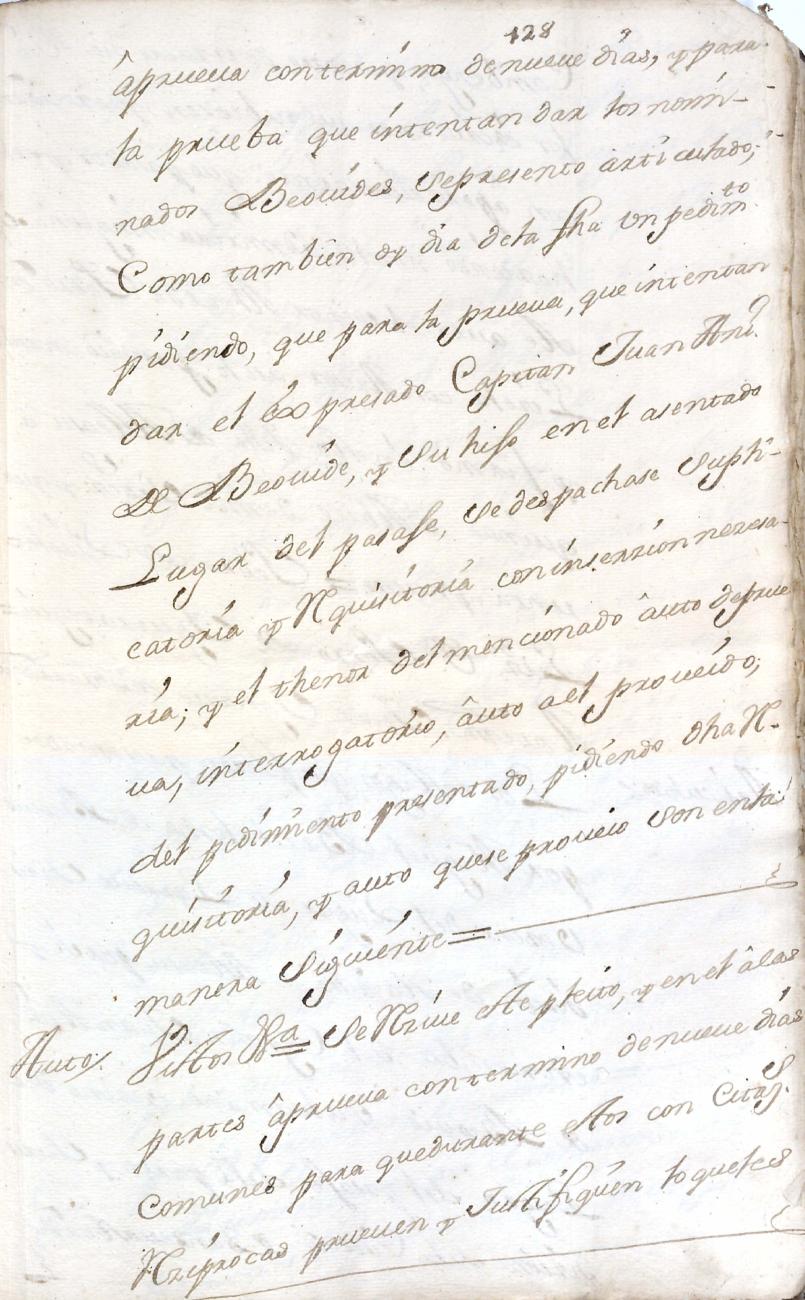 128
âprueva contermino denueve días, y para
la prueba que intentan dar los nomi-
nados Beovides, sepresento articulado;
Como tambien oy dia dela fha Un pedimto
pidiendo, que para la prueva, que intentan
dar el expresado Capitan Juan Anto
De Beovide, y su hijo en el asentado
Lugar del pasase, se despachase supli-
catoria y Rquisitoria coninserzion nezesa-
ria; y el thenor del mencionado âuto deprue
va, interrogatorio, âuto a el proveido;
del pedimiento presentado, pidiendo dha R-
quisitoria, y auto quese proveio son enla
manera siguiente =
Auto
Vistos &a = Se Rzive este pleito, y en el âlas
partes âprueva contermino denueve días
Comunes para quedurante estos con Citazs
Rziprocas prueven y Justifiquen loqueles